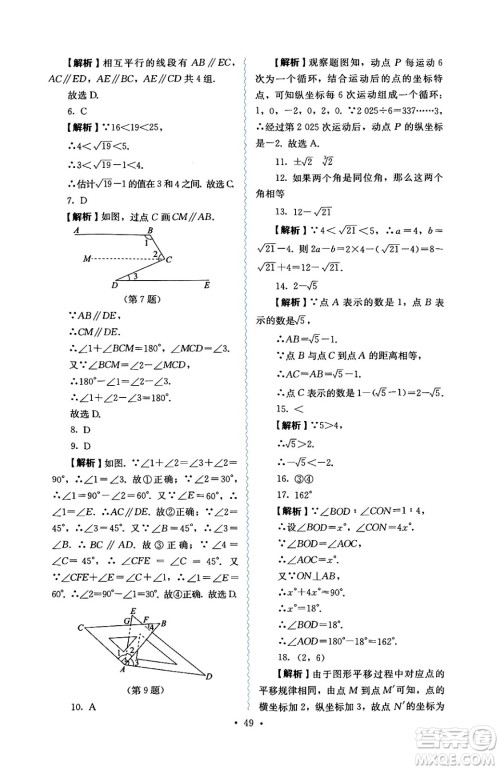 【解析】相互平行的线段有 AB∥EC,
AC∥DE,AD∥EF,AC∥EF 共 4 组.
故选 D.
6. C
【解析】∵16<19<25,
∴4<√19<5.
∴3<√19-1<4.
∴估计√19-1的值在3和4之间.故选 C.
7. D
【解析】如图,过点 C 画 CM∥AB.
A B
1
M 2 C
3
D E
(第 7 题)
∵AB∥DE,
∴CM∥DE.
∴∠1+∠BCM=180°,∠MCD=∠3.
又∵∠BCM=∠2-∠MCD,
∴180°-∠1=∠2-∠3.
∴∠1+∠2-∠3=180°.
故选 D.
8. D
9. D
【解析】如图.∵∠1+∠2=∠2+∠3=
90°,∴∠1=∠3.故①正确.∵∠2=45°,
∴∠1=90°-∠2=45°.∵∠E=45°,∴∠1
=∠E.∴AC∥DE.故②正确.∵∠2=45°,
∠B=45°,∴∠2=∠B.∴BC∥AD.故③正
确.∵AC∥DE,∴∠4=∠CFE.又∵∠CFE
=∠C,∴∠4=∠C.故④正确.故选 D.
E
G F B
C 4
1 2 3
A D
(第 9 题)
10. A
【解析】观察题图知,动点 P 每运动6
次为一个循环,结合运动后的点的坐标特
点,可知纵坐标每 6 次运动组成一个循环:
1,0,-2,0,2,0.∵2 025÷6=337……3,
∴经过第 2 025 次运动后,动点 P 的纵坐标
是-2.故选 A.
11. ±√2
12. 如果两个角是同位角,那么这两个
角相等
13. 12-√21
【解析】∵4<√21<5,∴a=4,b=
√21-4.则 2a-b=2×4-(√21-4)=8-
√21+4=12-√21.
14. 2-√5
【解析】∵点 A 表示的数是1,点 B 表
示的数是√5,
∴AB=√5-1.
∵点 B 与点 C 到点 A 的距离相等,
∴AC=AB=√5-1.
∴点 C 表示的数是1-(√5-1)=2-√5.
15. <
【解析】∵5>4,
∴√5>2.
∴-√5<-2.
16. ③④
17. 162°
【解析】∵∠BOD∶∠CON=1∶4,
∴设∠BOD=x°,∠CON=4x°.
∵∠BOD=∠AOC,
∴∠AOC=x°.
∵ON⊥AB,
∴x°+4x°=90°.
∴x°=18°.
∴∠AOD=180°-18°=162°.
18. (2,6)
【解析】由于图形平移过程中对应点的
平移规律相同,由点 M 到点 M′可知,点的
横坐标加 2,纵坐标加 3,故点 N′的坐标为
· 49 ·